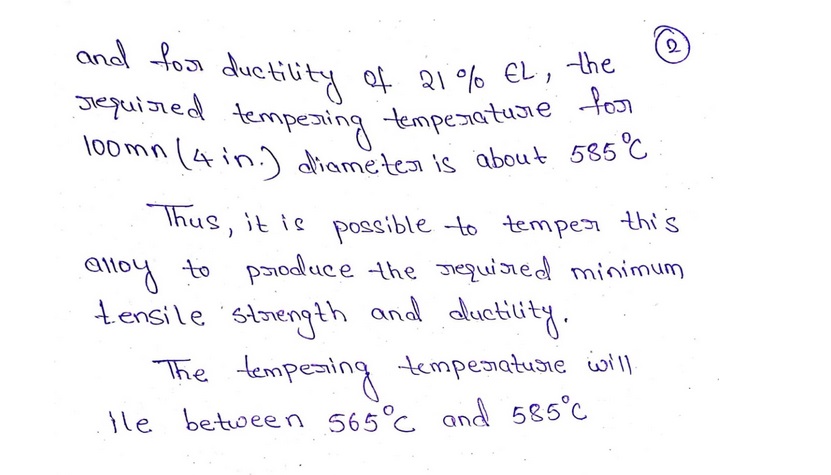 2
and for ductility of 21% EL, the
required tempering temperature for
100mm (4 in.) diameter is about 585°C
Thus, it is possible to temper this
alloy to produce the required minimum
tensile strength and ductility.
The tempering temperature will
lie between 565°C and 585°C